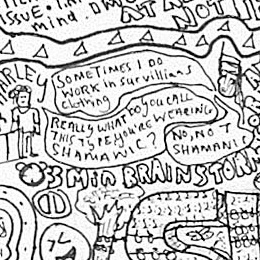 ISSUE.
mind.
AT
NOT
SOMETIMES I DO
WORK IN SURVILLIANS
clothing
REALLY WHAT DO YOU CALL
THIS TYPE YOU'RE WEARING
SHAMAWIC?
NO, NOT
SHAMAN!
3 MIN BRAINSTORM